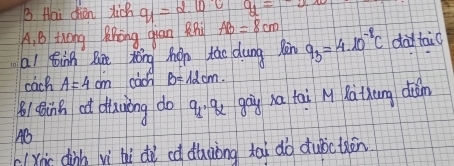 3. Hai điện tích q1 = 2 10 C q2 =
A, B trong không gian khi AB = 8 cm
a/ tính lực tổng hợp tác dụng lên q3 = 4.10^-8C đặt tại C
cách A = 4 cm cách B = 12cm.
b/ tính cđ đtrường do q1, q2 gây ra tại M là trung điểm
AB
c/ xác định vị trí để cđ đtrường tại đó được triệt